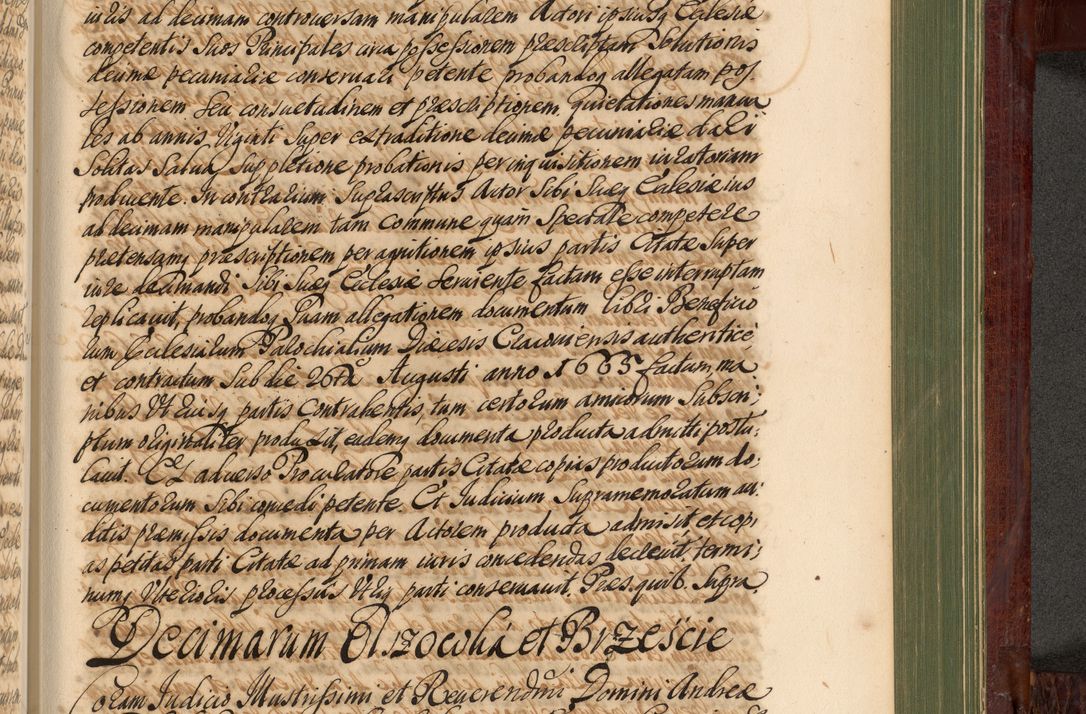 iuris ad decimam controversam manipularem Actori ipsiusq Eclesiæ
competentis suos Principales circa possessionem præscriptam solutionis
decimæ pecuniariæ conservari petente probandoq allegatam pos
sessionem seu consuetudinem et præscriptionem, quietationes manua
les ab annis Viginti super extraditione decimæ pecuniariæ dari
solitas salva suppletione probationis per inquisitionem iuratoriam
producente. In contrarium Suprascriptus Actor sibi suæq Eclesiæ ius
ad decimam manipularem tam commune quam Speciale competere
prætensamq præscriptionem per agnitionem ipsius partis Citatæ super
iure decimandi sibi suæq Eclesiæ serviente factam esse interruptam
replicavit, probandoq suam allegationem documentum libri Beneficio
rum Ecclesiarum Parochialium Diæcesis Cracoviensis authenticè,
et contractum sub die 26ta Augusti anno 1665 factum, ma
nibus utriusq partis Contrahentis, tum certorum amicorum subscri:
ptum originaliter produxit, eademq documenta producta admitti postu:
lavit. Et adverso Procuratore partis Citatæ copias productorum do:
cumentorum sibi concedi petente. Et Judicium Supramemoratum au:
ditis præmissis documenta per Actorem producta admisit et copi
as petitas parti Citatæ ad primam iuris concedendas decrevit, termi:
numq ulterioris processus utriq parti conservavit. Præs. quib. supra.
Decimarum Brzeście
Coram Judicio Illustrissimi et Reverendissimi Domini Andreæ